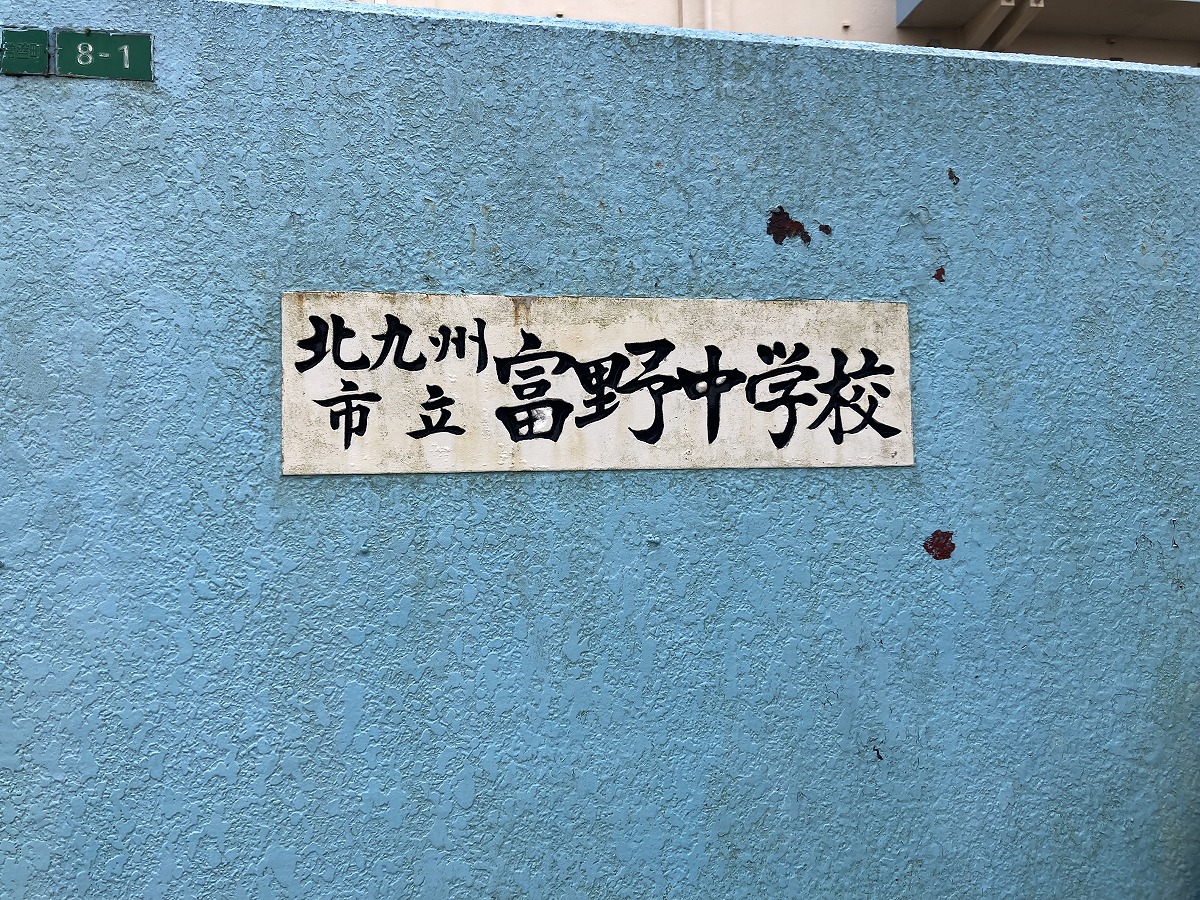 8-1
北九州
市立
富野中学校